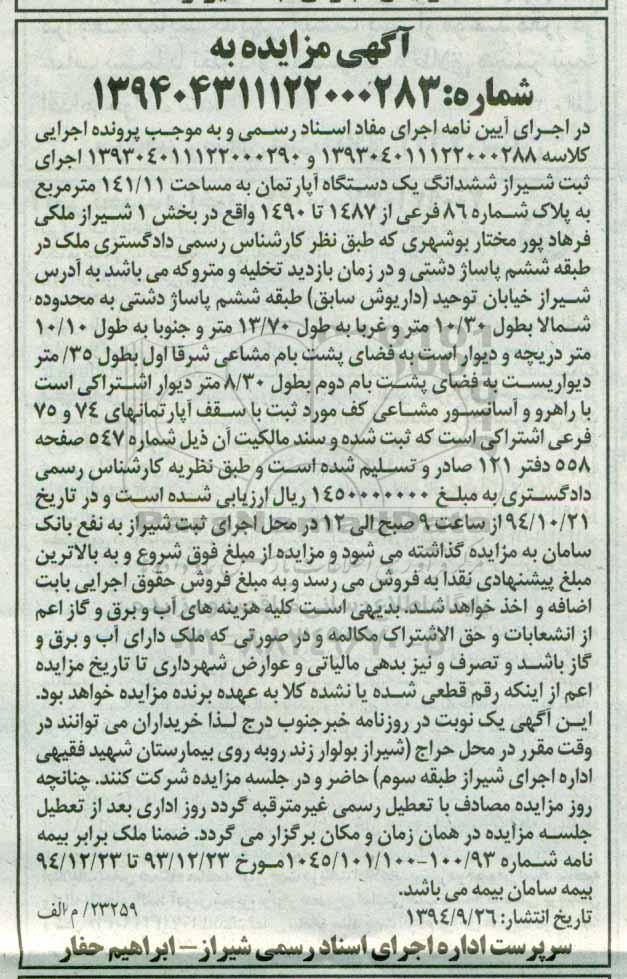 آگهی مزایده به
شماره:۱۳۹۴۰۴۳۱۱۱۲۲۰۰۰۲۸۳
در اجرای آیین نامه اجرای مفاد اسناد رسمی و به موجب پرونده اجرایی
کلاسه ۱۳۹۳۰۴۰۱۱۱۲۲۰۰۰۲۸۸ و ۱۳۹۳۰۴۰۱۱۱۲۲۰۰۰۲۹۰ اجرای
ثبت شیراز ششدانگ یک دستگاه آپارتمان به مساحت ۱۴۱/۱۱ مترمربع
به پلاک شماره ۸۶ فرعی از ۱۴۸۷ تا ۱۴۹۰ واقع در بخش ۱ شیراز ملکی
فرهاد پور مختار بوشهری که طبق نظر کارشناس رسمی دادگستری ملک در
طبقه ششم پاساژ دشتی و در زمان بازدید تخلیه و متروکه می باشد به آدرس
شیراز خیابان توحید (داریوش سابق) طبقه ششم پاساژ دشتی به محدوده
شمالا بطول ۱۰/۳۰ متر و غربا به طول ۱۳/۷۰ متر و جنوبا به طول ۱۰/۱۰
متر دریچه و دیوار است به فضای پشت بام مشاعی شرقا اول بطول ۳۵/ متر
دیواریست به فضای پشت بام دوم بطول ۸/۳۰ متر دیوار اشتراکی است
با راهرو و آسانسور مشاعی کف مورد ثبت با سقف آپارتمانهای ۷۴ و ۷۵
فرعی اشتراکی است که ثبت شده و سند مالکیت آن ذیل شماره ۵۴۷ صفحه
۵۵۸ دفتر ۱۲۱ صادر و تسلیم شده است و طبق نظریه کارشناس رسمی
دادگستری به مبلغ ۱۴۵۰۰۰۰۰۰۰ ریال ارزیابی شده است و در تاریخ
۹۴/۱۰/۲۱ از ساعت ۹ صبح الی ۱۲ در محل اجرای ثبت شیراز به نفع بانک
سامان به مزایده گذاشته می شود و مزایده از مبلغ فوق شروع و به بالاترین
مبلغ پیشنهادی نقدا به فروش می رسد و به مبلغ فروش حقوق اجرایی بابت
اضافه و اخذ خواهد شد. بدیهی است کلیه هزینه های آب و برق و گاز اعم
از انشعابات و حق الاشتراک مکالمه و در صورتی که ملک دارای آب و برق و
گاز باشد و تصرف و نیز بدهی مالیاتی و عوارض شهرداری تا تاریخ مزایده
اعم از اینکه رقم قطعی شده یا نشده کلا به عهده برنده مزایده خواهد بود.
این آگهی یک نوبت در روزنامه خبرجنوب درج لذا خریداران می توانند در
وقت مقرر در محل حراج (شیراز بولوار زند روبه روی بیمارستان شهید فقیهی
اداره اجرای شیراز طبقه سوم) حاضر و در جلسه مزایده شرکت کنند. چنانچه
روز مزایده مصادف با تعطیل رسمی غیرمترقبه گردد روز اداری بعد از تعطیل
جلسه مزایده در همان زمان و مکان برگزار می گردد. ضمنا ملک برابر بیمه
نامه شماره ۱۰۰/۹۳-۱۰۴۵/۱۰۱/۱۰۰مورخ ۹۳/۱۲/۲۳ تا ۹۴/۱۲/۲۳
بیمه سامان بیمه می باشد.
۲۳۲۵۹/ م الف
تاریخ انتشار: ۱۳۹۴/۹/۲۶
سرپرست اداره اجرای اسناد رسمی شیراز – ابراهیم حفار